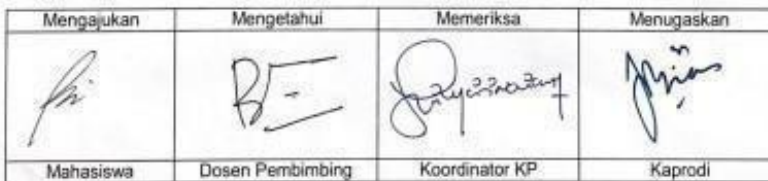 Mengajukan Mengetahui Memeriksa Menugaskan
Mahasiswa Dosen Pembimbing Koordinator KP Kaprodi